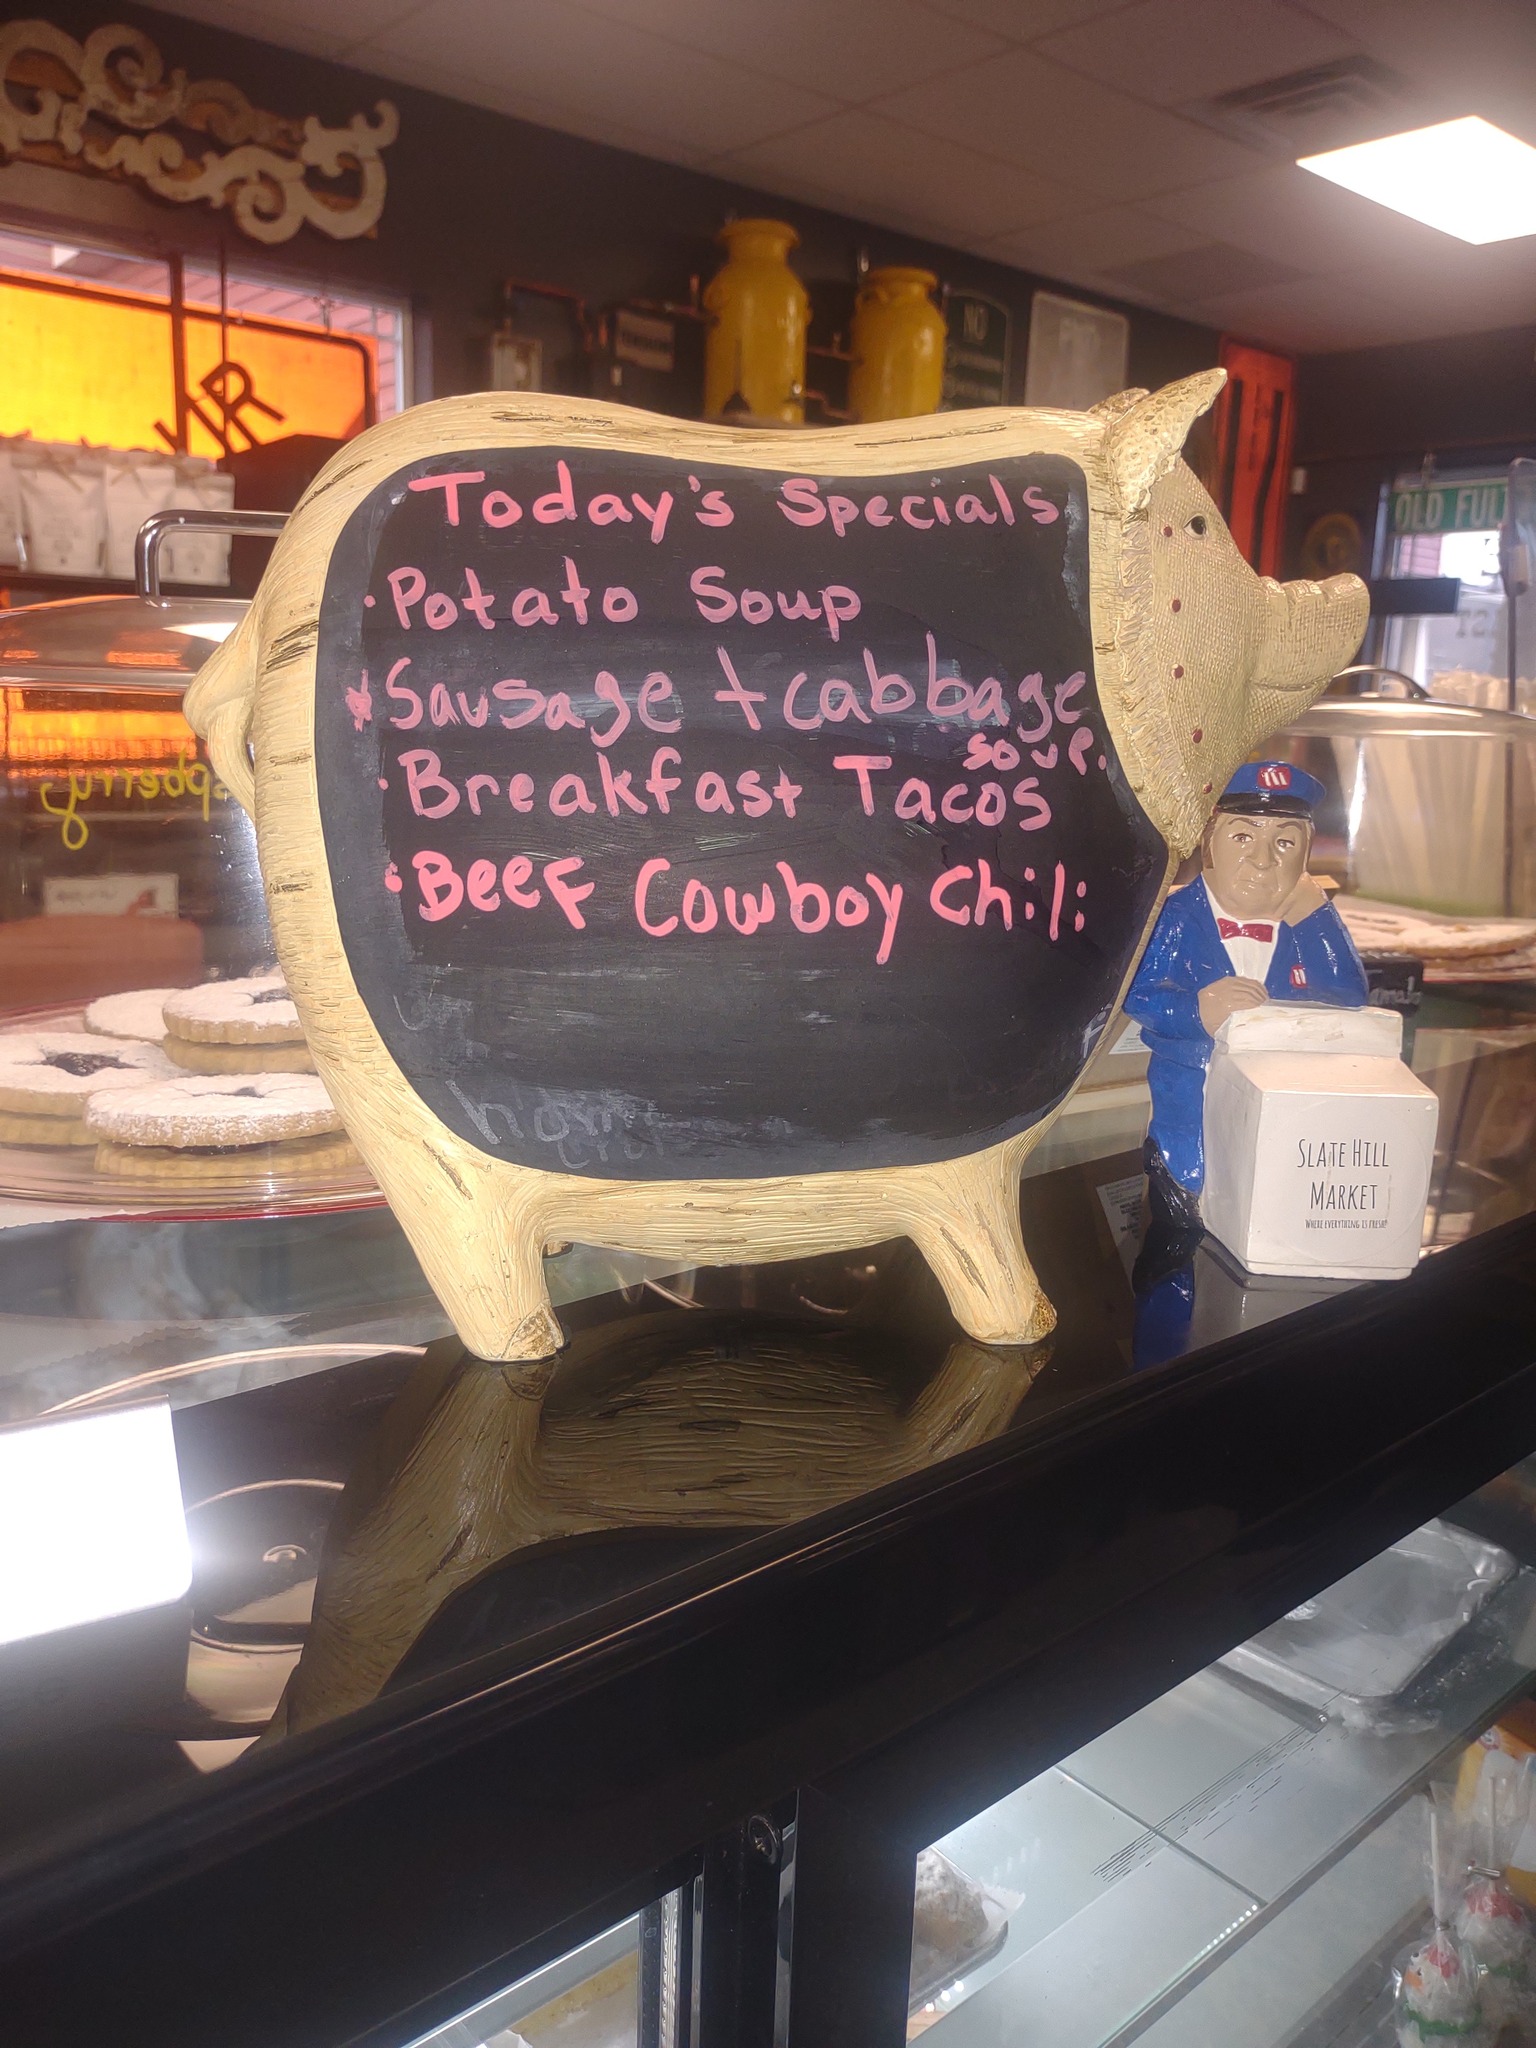 Today's Specials
· Potato Soup
* Sausage + cabbage
soup.
· Breakfast Tacos
· Beef Cowboy Chili
SLATE HILL
MARKET
WHERE EVERYTHING IS FRESH!
OLD FUL
NO